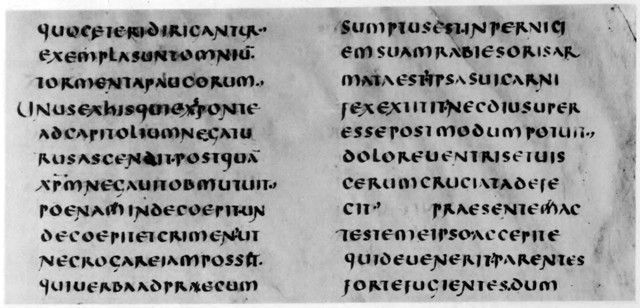 QUOCETERIDIRIGANTUR.,
EXEMPLASUNTOMNIŪ
TORMENTAPAUCORUM.,
UNUSEXHISQUIEXPONTE
ADCAPITOLIUMNEGATU
RUSASCENDIT·POSTQUĀ
XPMNEGAUITOBMUTUIT.,
POENAMINDECOEPITUN
DECOEPITETCRIMEN·UT
NECROGAREIAMPOSSIT·
QUIUERBAADPRAECUM
SUMPTUSEST·INPERNICI
EMSUAMRABIESORISAR
MATAEST·IPSASUICARNI
FEXEXTITIT·NECDIUSUPER
ESSEPOSTMODUMPOTUIT.,
DOLOREUENTRISETUIS
CERUMCRUCIATADEFE
CIT., PRAESENTEMAC
TESTEMEIPSO·ACCIPITE
QUIDEUENERIT·PARENTES
FORTEFUGIENTES·DUM